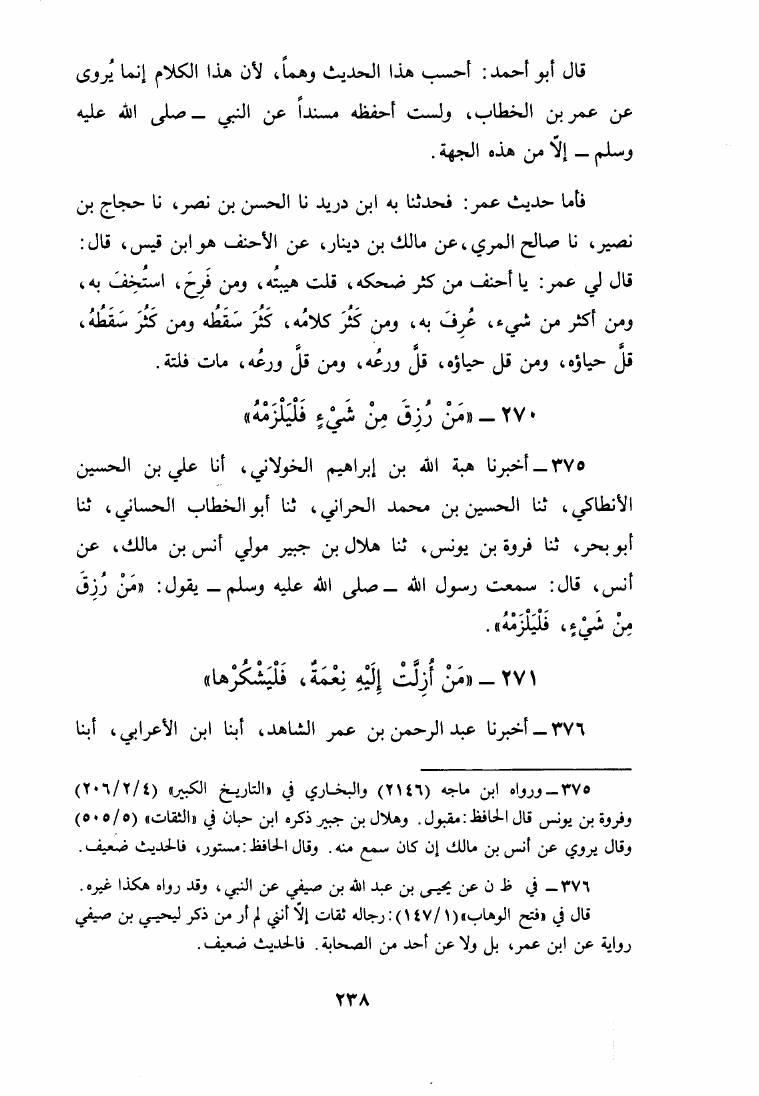 قال أبو أحمد: أحسب هذا الحديث وهماً، لأن هذا الكلام إنما يُروى
عن عمر بن الخطاب، ولست أحفظه مسنداً عن النبي ــ صلى الله عليه
وسلم ــ إلّا من هذه الجهة.
فأما حديث عمر: فحدثنا به ابن دريد نا الحسن بن نصر، نا حجاج بن
نصير، نا صالح المري، عن مالك بن دينار، عن الأحنف هو ابن قيس، قال:
قال لي عمر: يا أحنف من كثر ضحكه، قلت هيبتُه، ومن فَرِحَ، استُخِفَ به،
ومن أكثر من شيء، عُرِفَ به، ومن كَثُرَ كلامُه، كَثُرَ سَقَطُه ومن كَثُرَ سَقَطُهُ،
قلَّ حياؤه، ومن قل حياؤه، قلَّ ورعُه، ومن قلَّ ورعُه، مات فلتة.
٢٧٠ ــ «مَنْ رُزِقَ مِنْ شَيْءٍ فَلْيَلْزَمْهُ»
٣٧٥ ــ أخبرنا هبة الله بن إبراهيم الخولاني، أنا علي بن الحسين
الأنطاكي، ثنا الحسين بن محمد الحراني، ثنا أبو الخطاب الحساني، ثنا
أبو بحر، ثنا فروة بن يونس، ثنا هلال بن جبير مولي أنس بن مالك، عن
أنس، قال: سمعت رسول الله ــ صلى الله عليه وسلم ــ يقول: «مَنْ رُزِقَ
مِنْ شَيْءٍ، فَلْيَلْزَمْهُ».
٢٧١ ــ «مَنْ أُزِلَّتْ إِلَيْهِ نِعْمَةٌ، فَلْيَشْكُرْها»
٣٧٦ ــ أخبرنا عبد الرحمن بن عمر الشاهد، أبنا ابن الأعرابي، أبنا
٣٧٥ ــ ورواه ابن ماجه (٢١٤٦) والبخاري في «التاريخ الكبير» (٢٠٦/٢/٤)
وفروة بن يونس قال الحافظ: مقبول. وهلال بن جبير ذكره ابن حبان في «الثقات» (٥٠٥/٥)
وقال يروي عن أنس بن مالك إن كان سمع منه. وقال الحافظ: مستور، فالحديث ضعيف.
٣٧٦ ــ في ظ ن عن يحيى بن عبد الله بن صيفي عن النبي، وقد رواه هكذا غيره.
قال في «فتح الوهاب» (١٤٧/١): رجاله ثقات إلّا أنني لم أر من ذكر ليحيى بن صيفي
رواية عن ابن عمر، بل ولا عن أحد من الصحابة. فالحديث ضعيف.
٢٣٨